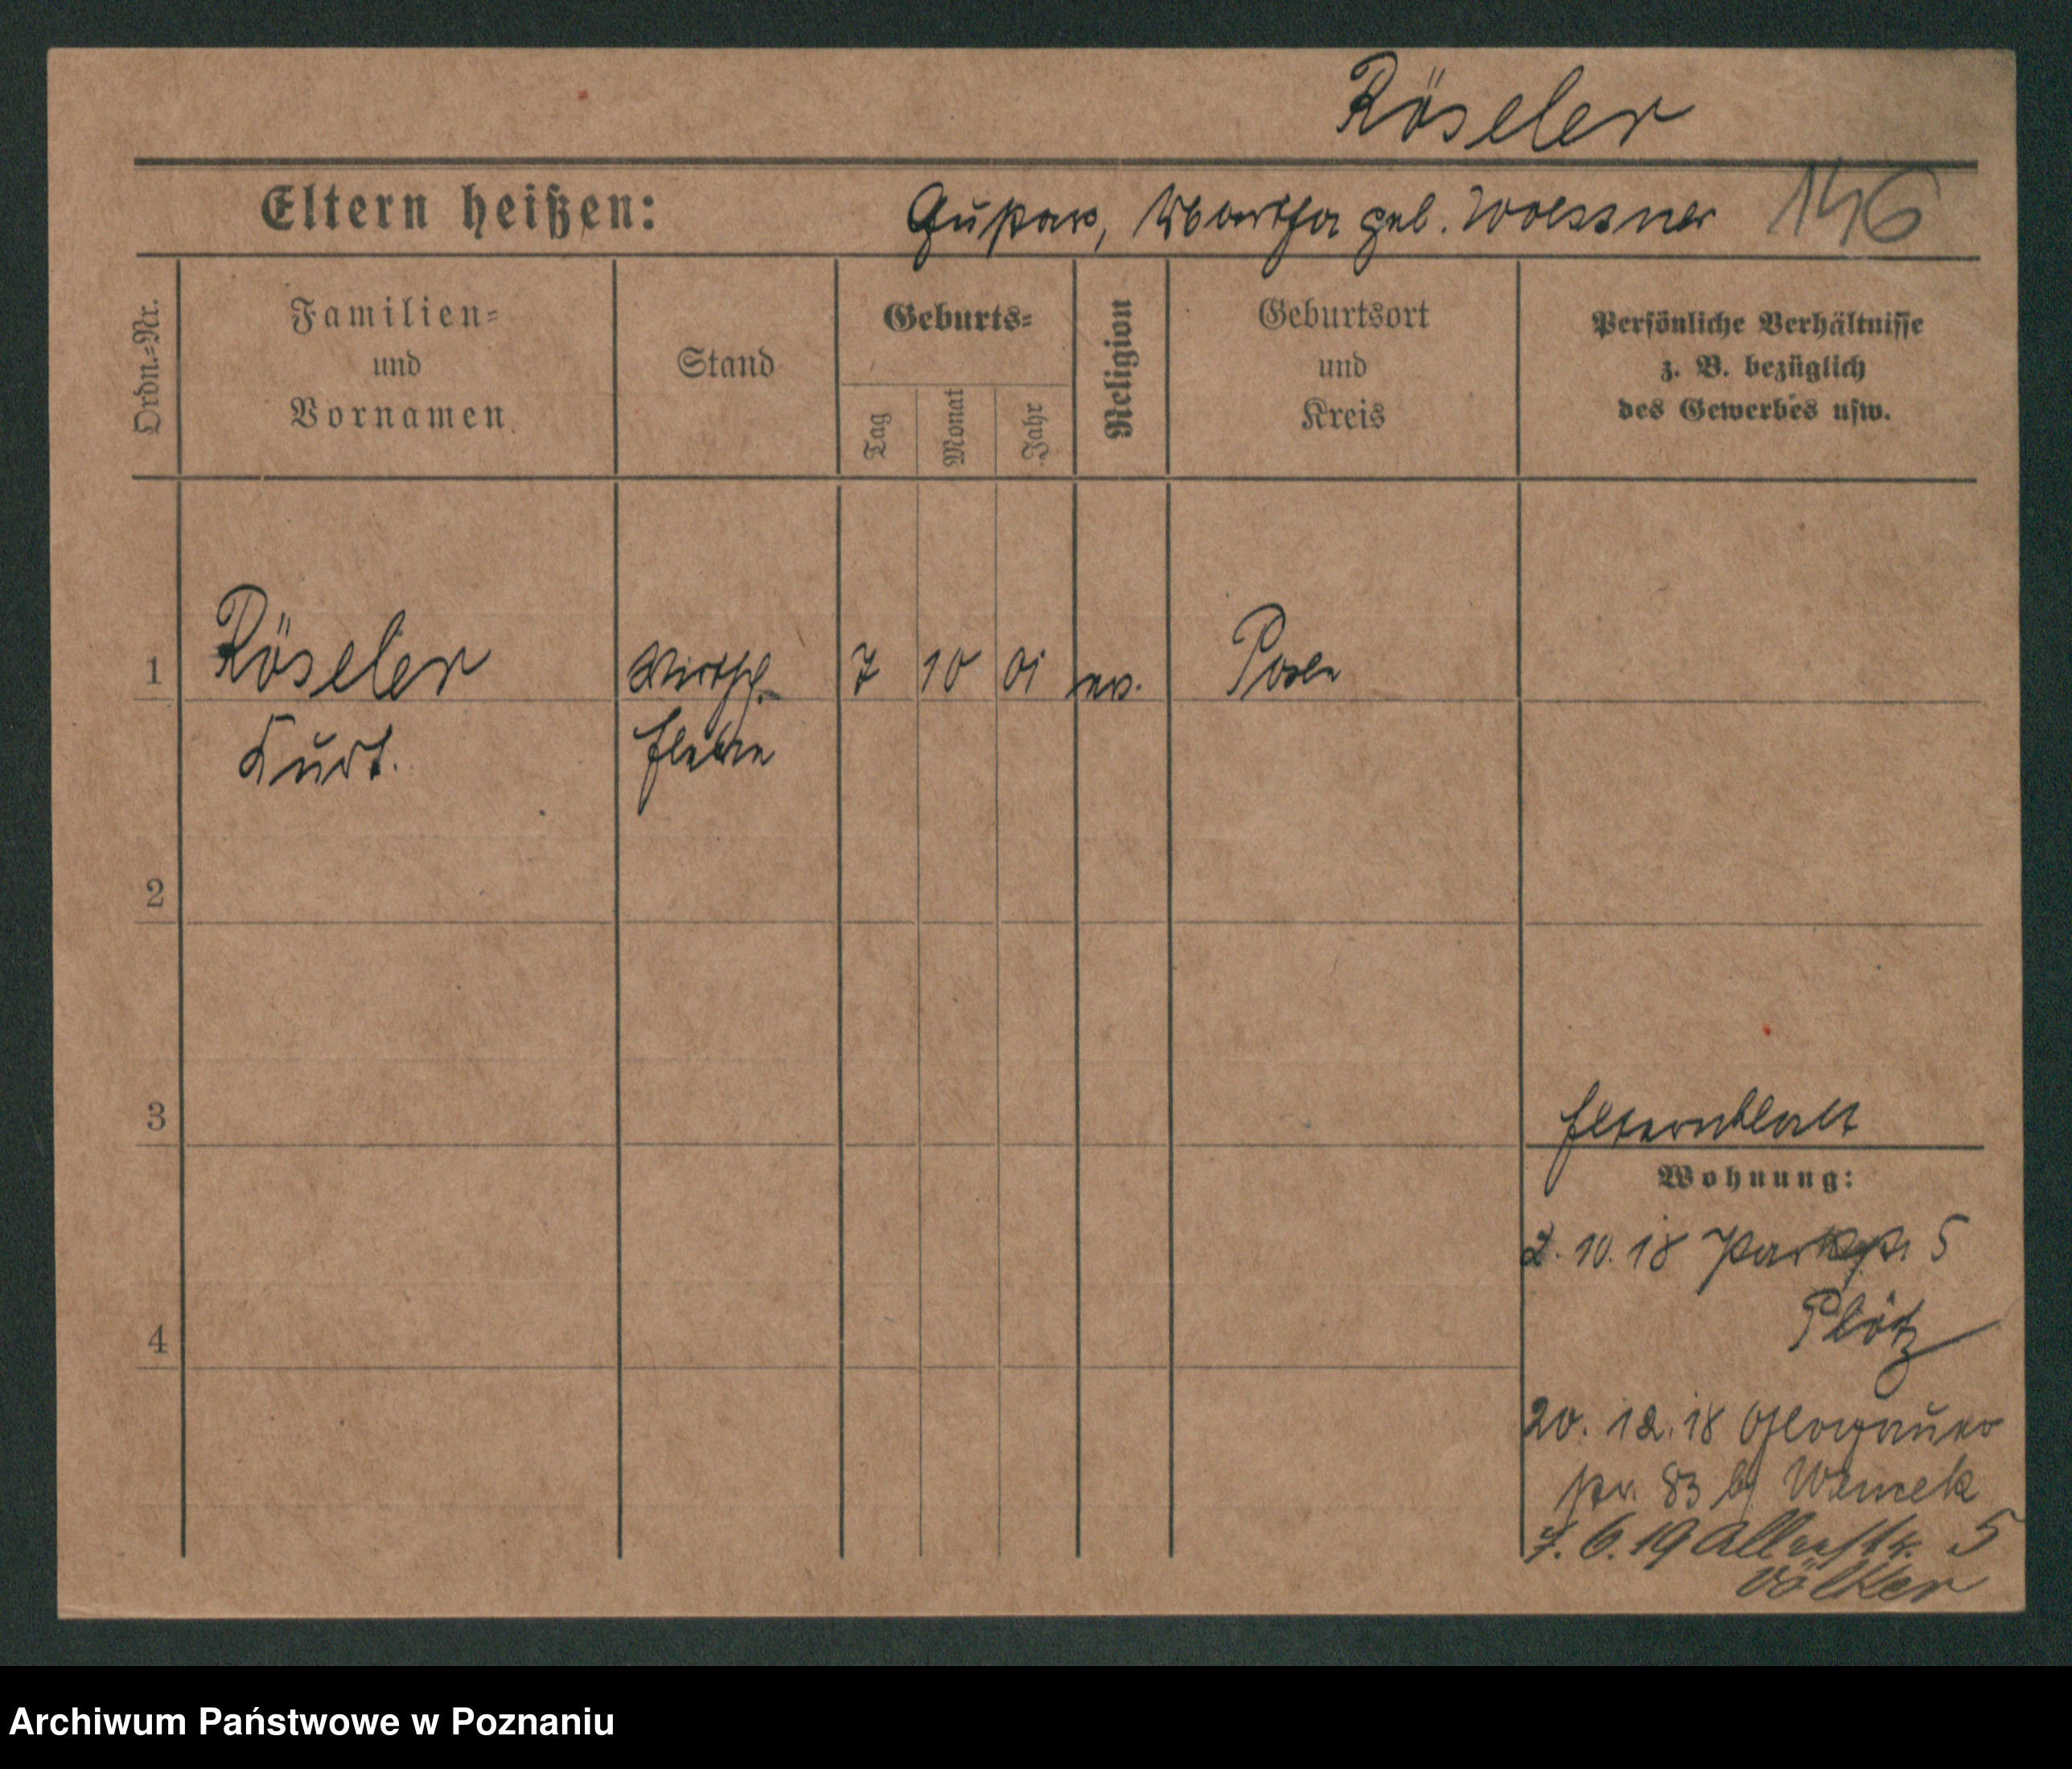 Röseler
Eltern heißen: Gustav, Martha geb. Woessner 146
Ordn.=Nr.
Familien=
und
Vornamen
Stand
Geburts=
Tag
Monat
Jahr
Religion
Geburtsort
und
Kreis
Persönliche Verhältnisse
z. B. bezüglich
des Gewerbes usw.
1 Röseler Wirtsch. 7 10 01 ev. Posen
Kurt. Eleve
2
3
Elternblatt
Wohnung:
2. 10. 18 Parkstr. 5
Plötz
4
20. 12. 18 Glogauer
str. 83 bj
7. 6. 19 5
Völker
Archiwum Państwowe w Poznaniu